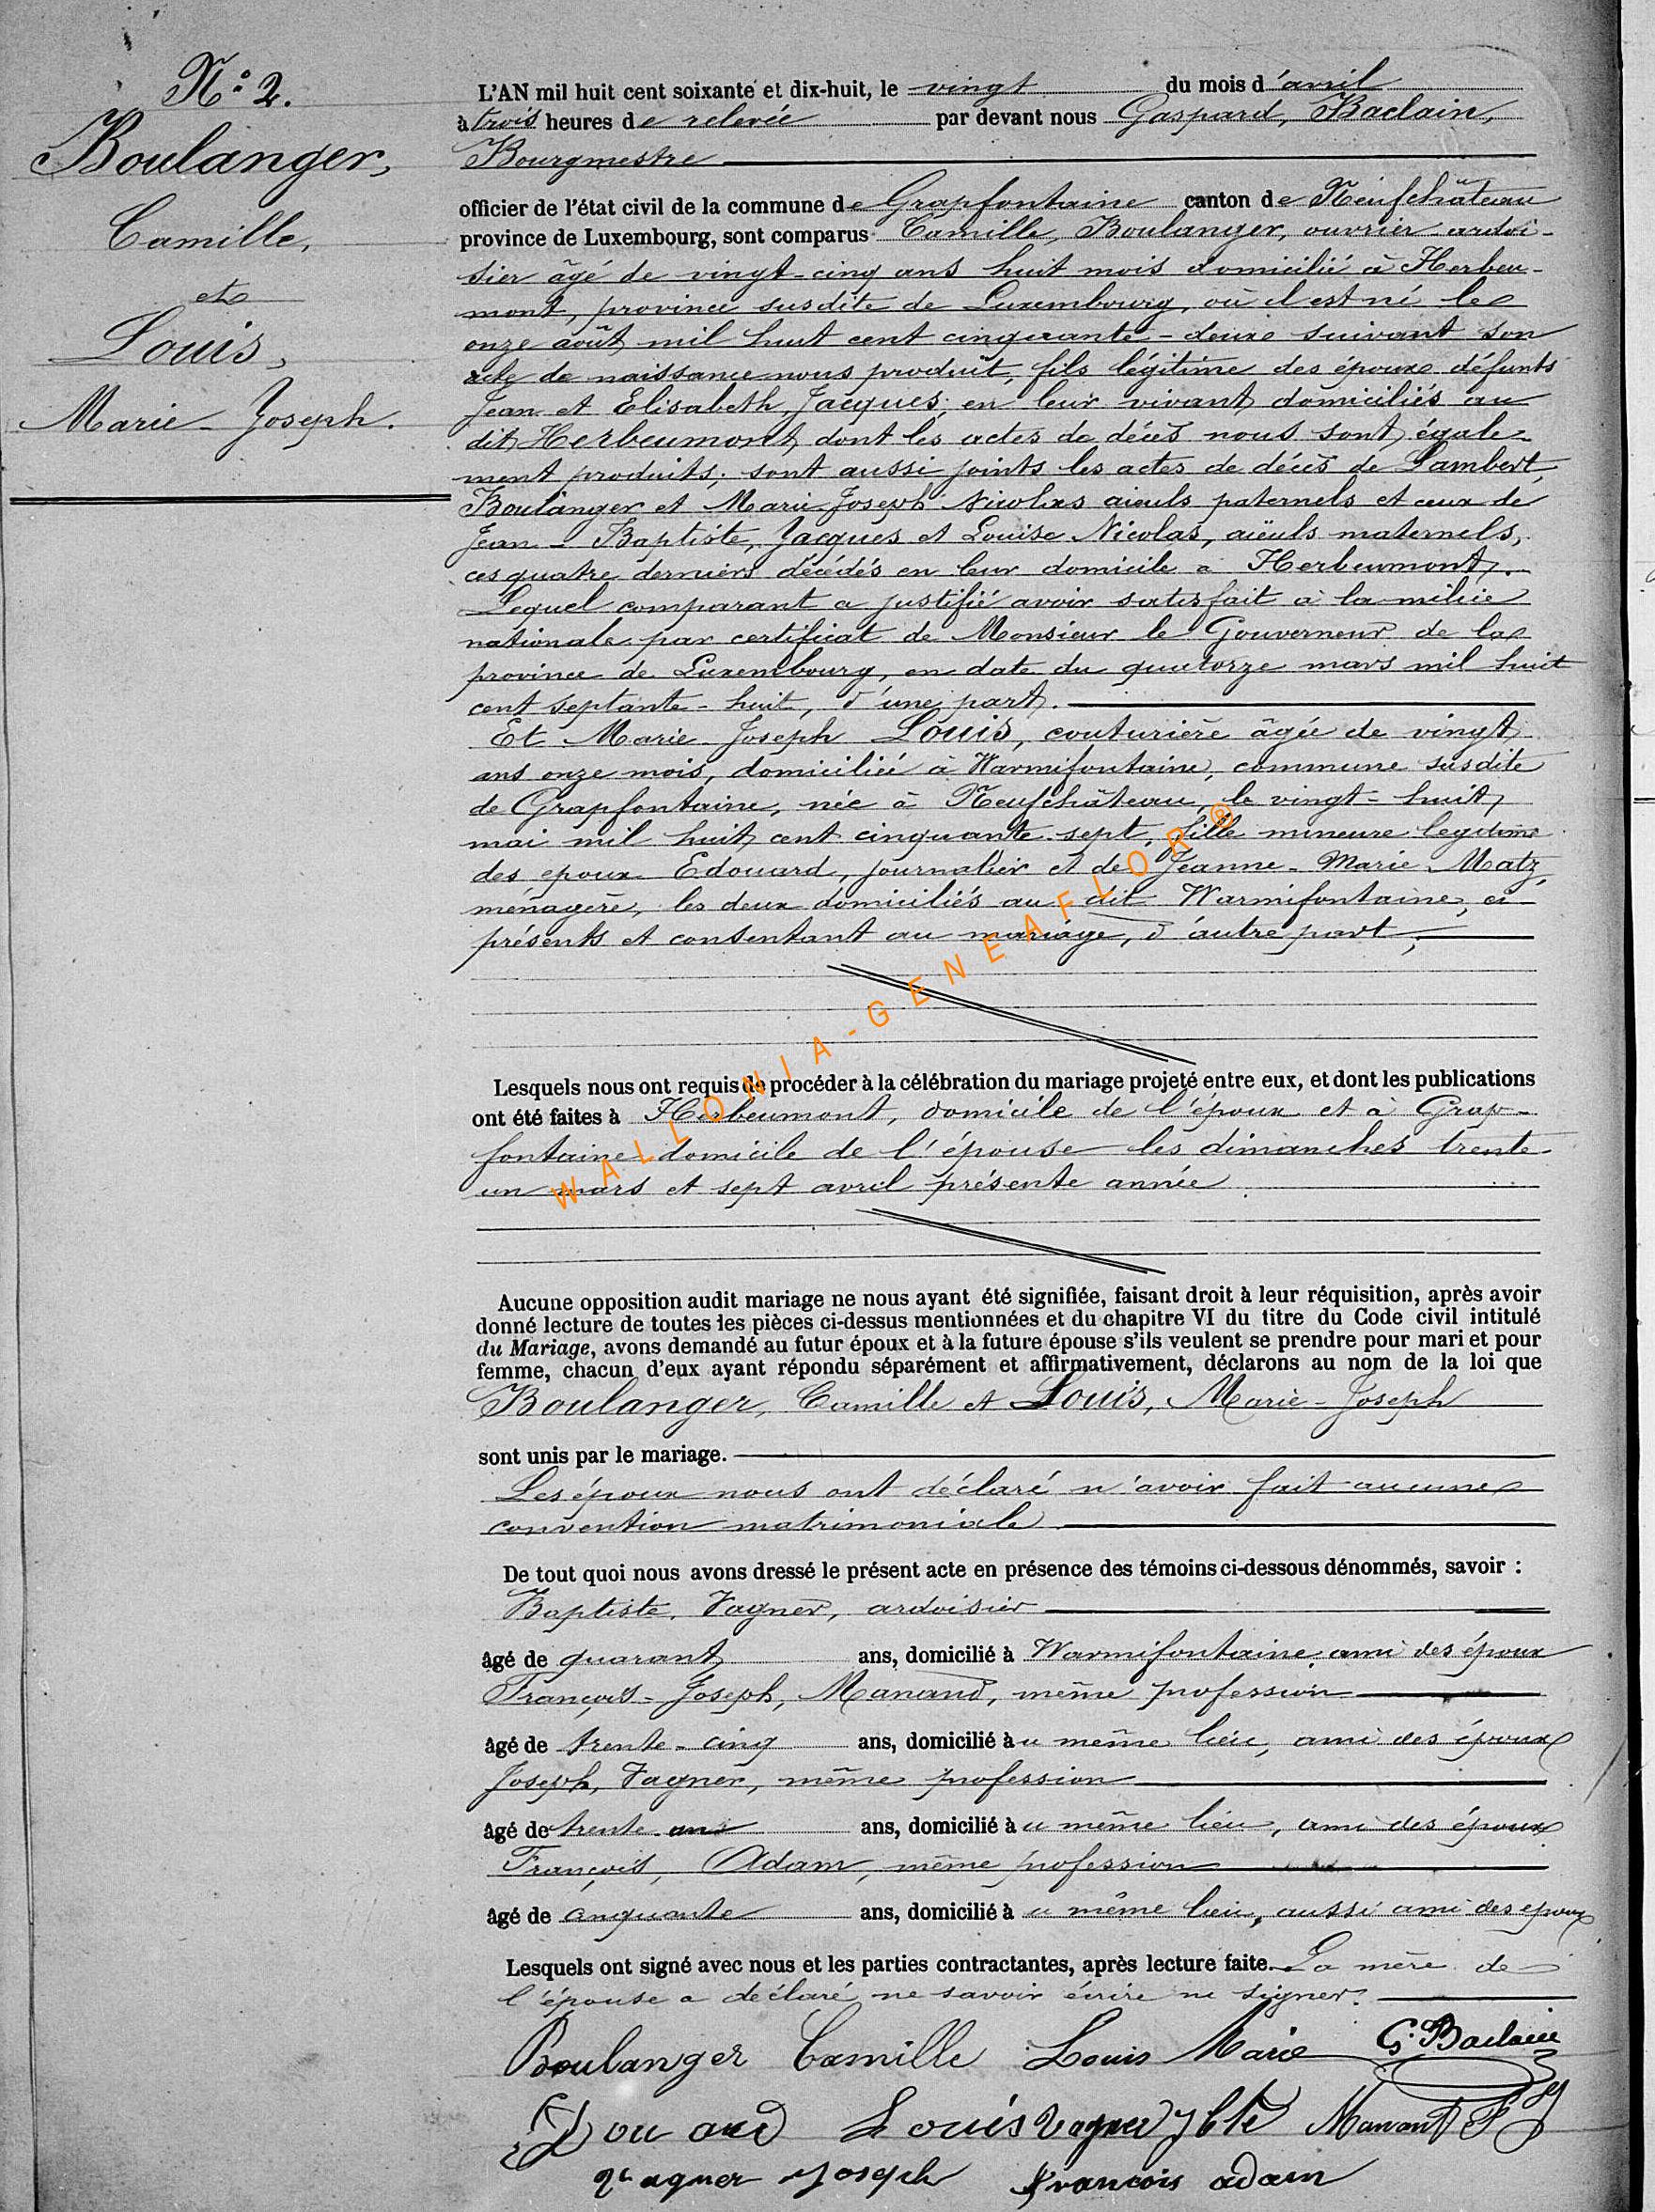 N.o 2.
Boulanger,
Camille,
et
Louis,
Marie-Joseph.
L'AN mil huit cent soixante et dix-huit, le vingt du mois d'avril
à trois heures de relevée par devant nous Gaspard, Baclain,
Bourgmestre
officier de l'état civil de la commune de Grapfontaine canton de Neufchâteau
province de Luxembourg, sont comparus Camille, Boulanger, ouvrier ardoi-
sier âgé de vingt-cinq ans huit mois domicilié à Herbeu-
mont, province susdite de Luxembourg, où il est né le
onze août mil huit cent cinquante-deux suivant son
acte de naissance nous produit, fils légitime des époux défunts
Jean et Elisabeth, Jacques; en leur vivant domiciliés au
dit Herbeumont, dont les actes de décès nous sont égale-
ment produits; sont aussi joints les actes de décès de Lambert,
Boulanger et Marie Joseph Nicolas aieuls paternels et ceux de
Jean-Baptiste, Jacques et Louise Nicolas, aïeuls maternels,
ces quatre derniers décédés en leur domicile à Herbeumont.
Lequel comparant a justifié avoir satisfait à la milice
nationale par certificat de Monsieur le Gouverneur de la
province de Luxembourg, en date du quatorze mars mil huit
cent septante-huit, d'une part.
Et Marie-Joseph Louis, couturière âgée de vingt
ans onze mois, domiciliée à Warmifontaine, commune susdite
de Grapfontaine, née à Neufchâteau, le vingt-huit
mai mil huit cent cinquante sept, fille mineure legitime
des epoux Edouard, journalier et de Jeanne-Marie Matz,
ménagère, les deux domiciliés au dit Warmifontaine, ci
présents et consentant au mariage, d'autre part;
WALLONIA-GENEAFLOR®
Lesquels nous ont requis de procéder à la célébration du mariage projeté entre eux, et dont les publications
ont été faites à Herbeumont, domicile de l'époux et à Grap-
fontaine domicile de l'épouse les dimanches trente
un mars et sept avril présente année
Aucune opposition audit mariage ne nous ayant été signifiée, faisant droit à leur réquisition, après avoir
donné lecture de toutes les pièces ci-dessus mentionnées et du chapitre VI du titre du Code civil intitulé
du Mariage, avons demandé au futur époux et à la future épouse s'ils veulent se prendre pour mari et pour
femme, chacun d'eux ayant répondu séparément et affirmativement, déclarons au nom de la loi que
Boulanger, Camille et Louis, Marie-Joseph
sont unis par le mariage.
Les époux nous ont déclaré n'avoir fait aucune
convention matrimoniale
De tout quoi nous avons dressé le présent acte en présence des témoins ci-dessous dénommés, savoir :
Baptiste, Vagner, ardoisier
âgé de quarant ans, domicilié à Warmifontaine, ami des époux
François-Joseph, Manand, même profession
âgé de trente-cinq ans, domicilié à u même lieu, ami des époux
Joseph, Vagner, même profession
âgé de trente ans ans, domicilié à u même lieu, ami des époux
François, Adam, même profession
âgé de cinquante ans, domicilié à u même lieu, aussi ami des epoux
Lesquels ont signé avec nous et les parties contractantes, après lecture faite. La mère de
l'épouse a déclaré ne savoir écrire ni signer.
Boulanger Camille Louis Marie G. Baclain
Edouard Louis Vagner Jbte Manant F J
Wagner Joseph françois adam